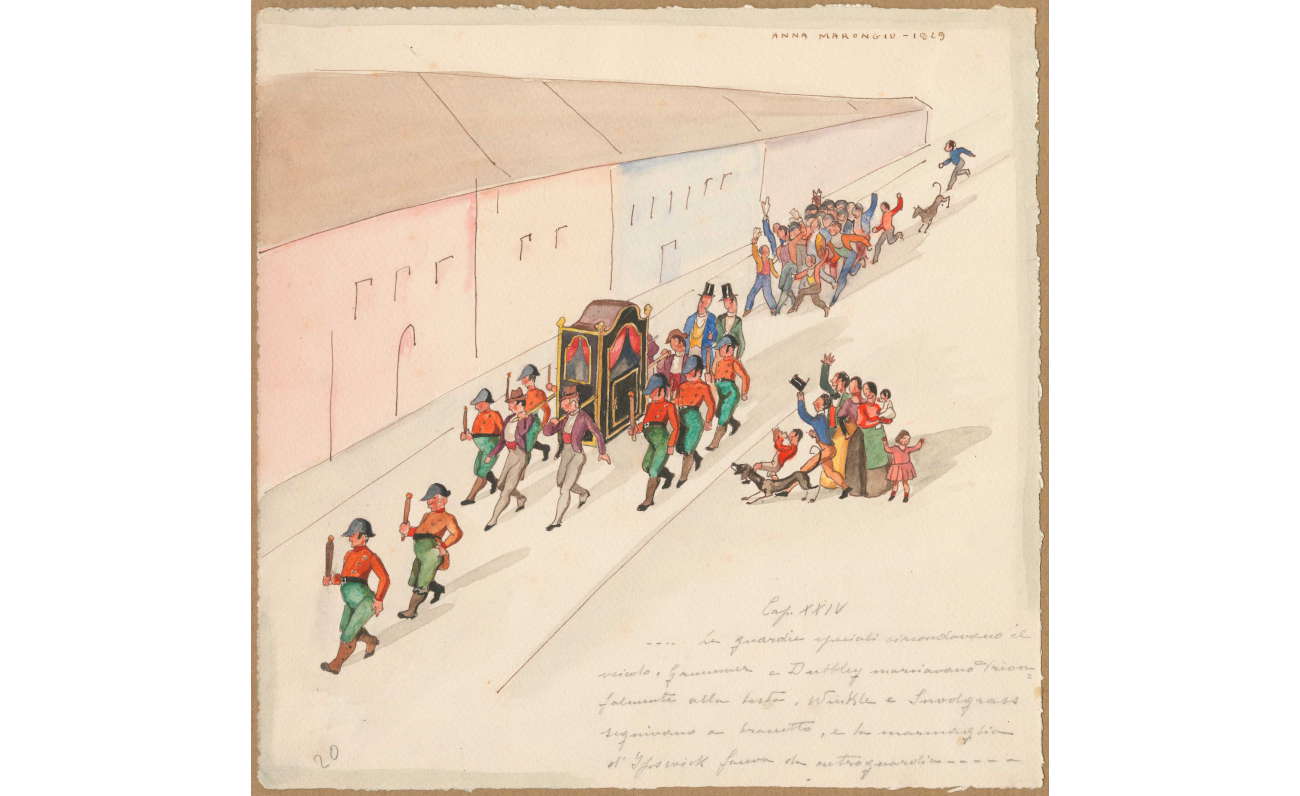 ANNA MARONGIU - 1929
Cap. XXIV
---- Le guardie speciali circondavano il
veicolo. Grummer e Dubbley marciavano trion=
falmente alla testa, Winkle e Snodgrass
seguivano a braccetto, e la marmaglia
d'Ipswich faceva da retroguardia -----
20